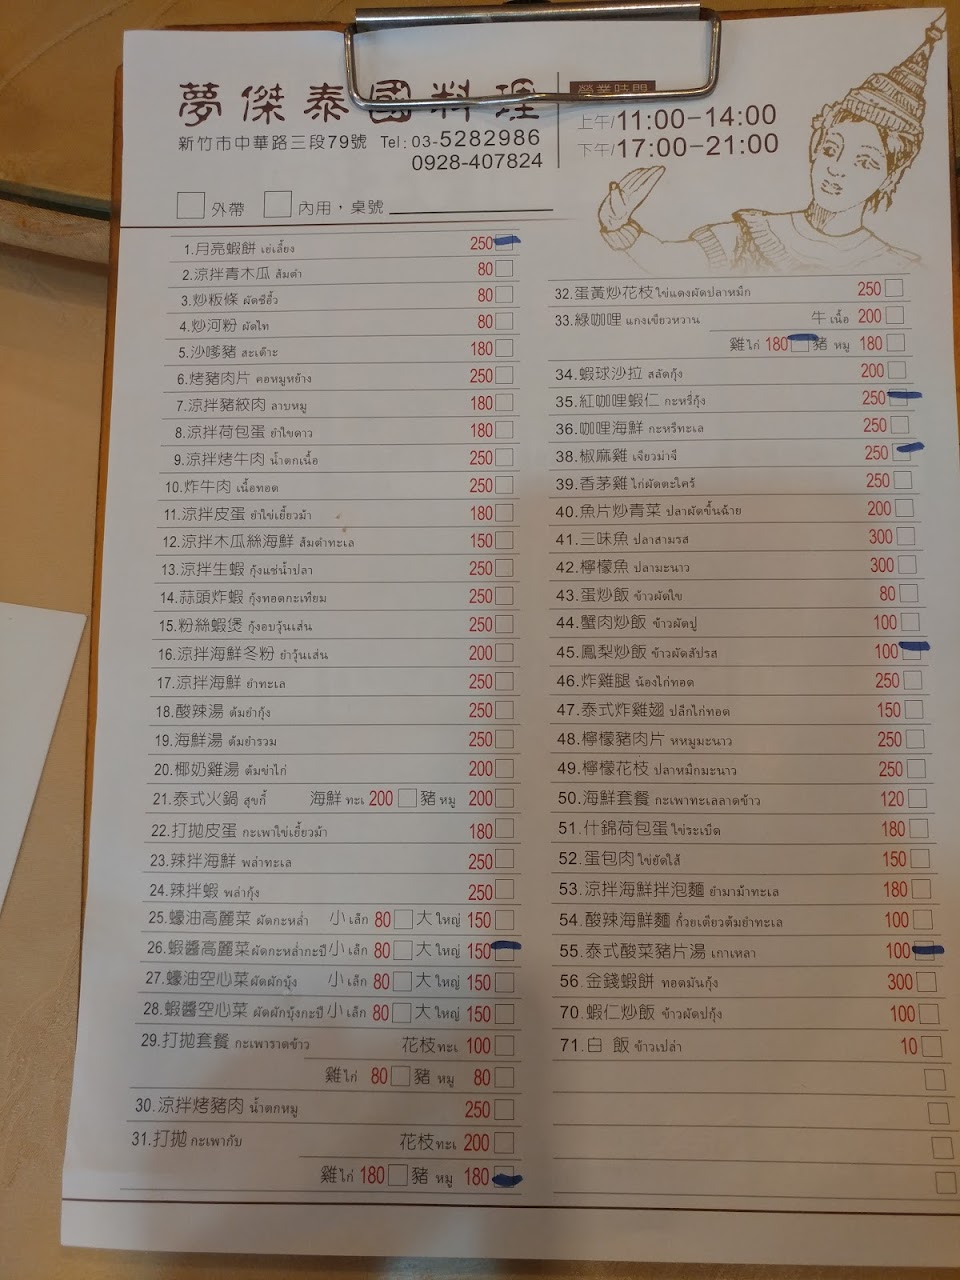 夢傑泰國料理
營業時間
新竹市中華路三段79號 Tel: 03-5282986
0928-407824
上午/11:00-14:00
下午/17:00-21:00
外帶 內用,桌號
1.月亮蝦餅 เฮ่เลี้ยง 250
2.涼拌青木瓜 ส้มตำ 80
3.炒粄條 ผัดซีอิ้ว 80
4.炒河粉 ผัดไท 80
5.沙嗲豬 สะเต๊าะ 180
6.烤豬肉片 คอหมูหย้าง 250
7.涼拌豬絞肉 ลาบหมู 180
8.涼拌荷包蛋 ยำไขดาว 180
9.涼拌烤牛肉 น้ำตกเนื้อ 250
10.炸牛肉 เนื้อทอด 250
11.涼拌皮蛋 ยำไข่เยี้ยวม้า 180
12.涼拌木瓜絲海鮮 ส้มตำทะเล 150
13.涼拌生蝦 กุ้งแช่น้ำปลา 250
14.蒜頭炸蝦 กุ้งทอดกะเทียม 250
15.粉絲蝦煲 กุ้งอบวุ้นเส่น 250
16.涼拌海鮮冬粉 ยำวุ้นเส่น 200
17.涼拌海鮮 ยำทะเล 250
18.酸辣湯 ต้มยำกุ้ง 250
19.海鮮湯 ต้มยำรวม 250
20.椰奶雞湯 ต้มข่าไก่ 200
21.泰式火鍋 สุขกี้ 海鮮 ทะเ 200 豬 หมู 200
22.打拋皮蛋 กะเพาไข่เยี้ยวม้า 180
23.辣拌海鮮 พล่าทะเล 250
24.辣拌蝦 พล่ากุ้ง 250
25.蠔油高麗菜 ผัดกะหล่ำ 小 เล็ก 80 大 ใหญ่ 150
26.蝦醬高麗菜 ผัดกะหล่ำกะปิ 小 เล็ก 80 大 ใหญ่ 150
27.蠔油空心菜 ผัดผักบุ้ง 小 เล็ก 80 大 ใหญ่ 150
28.蝦醬空心菜 ผัดผักบุ้งกะปี 小 เล็ก 80 大 ใหญ่ 150
29.打拋套餐 กะเพาราดข้าว 花枝 ทะเ 100
雞 ไก่ 80 豬 หมู 80
30.涼拌烤豬肉 น้ำตกหมู 250
31.打拋 กะเพากับ 花枝 ทะเ 200
雞 ไก่ 180 豬 หมู 180
32.蛋黃炒花枝 ไข่แดงผัดปลาหมึก 250
33.綠咖哩 แกงเขียวหวาน 牛 เนื้อ 200
雞 ไก่ 180 豬 หมู 180
34.蝦球沙拉 สลัดกุ้ง 200
35.紅咖哩蝦仁 กะหรี่กุ้ง 250
36.咖哩海鮮 กะหรีทะเล 250
38.椒麻雞 เจียวม่าจี 250
39.香茅雞 ไก่ผัดตะไคร้ 250
40.魚片炒青菜 ปลาผัดขึ้นฉ้าย 200
41.三味魚 ปลาสามรส 300
42.檸檬魚 ปลามะนาว 300
43.蛋炒飯 ข้าวผัดไข 80
44.蟹肉炒飯 ข้าวผัดปู 100
45.鳳梨炒飯 ข้าวผัดสัปรส 100
46.炸雞腿 น้องไก่ทอด 250
47.泰式炸雞翅 ปลีกไก่ทอด 150
48.檸檬豬肉片 หหมูมะนาว 250
49.檸檬花枝 ปลาหมึกมะนาว 250
50.海鮮套餐 กะเพาทะเลลาดข้าว 120
51.什錦荷包蛋 ไข่ระเบิด 180
52.蛋包肉 ไข่ยัดใส้ 150
53.涼拌海鮮拌泡麵 ยำมาม้าทะเล 180
54.酸辣海鮮麵 ก๋วยเตียวต้มยำทะเล 100
55.泰式酸菜豬片湯 เกาเหลา 100
56.金錢蝦餅 ทอดมันกุ้ง 300
70.蝦仁炒飯 ข้าวผัดปกุ้ง 100
71.白 飯 ข้าวเปล่า 10